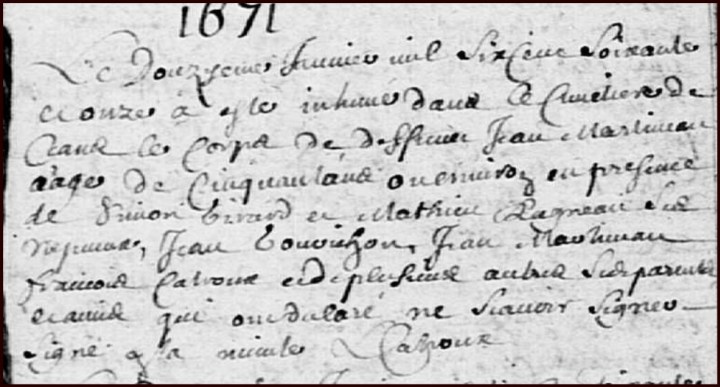 1671
Le Douzyeme Janvier mil Six Cent Soixante
et onze a este inhumé dans le Cimetiere de
le Corps de deffunct Jean Martineau
aagé de Cinquant ans ou environ en presence
de Simon Girard et Mathieu Ragneau Ses
Nepveux, Jean bouvichon, Jean Martineau
francois Catroux et de plusieurs autres Ses parents
et amis qui ont declaré ne Scavoir Signer
Signé a la minute Catroux